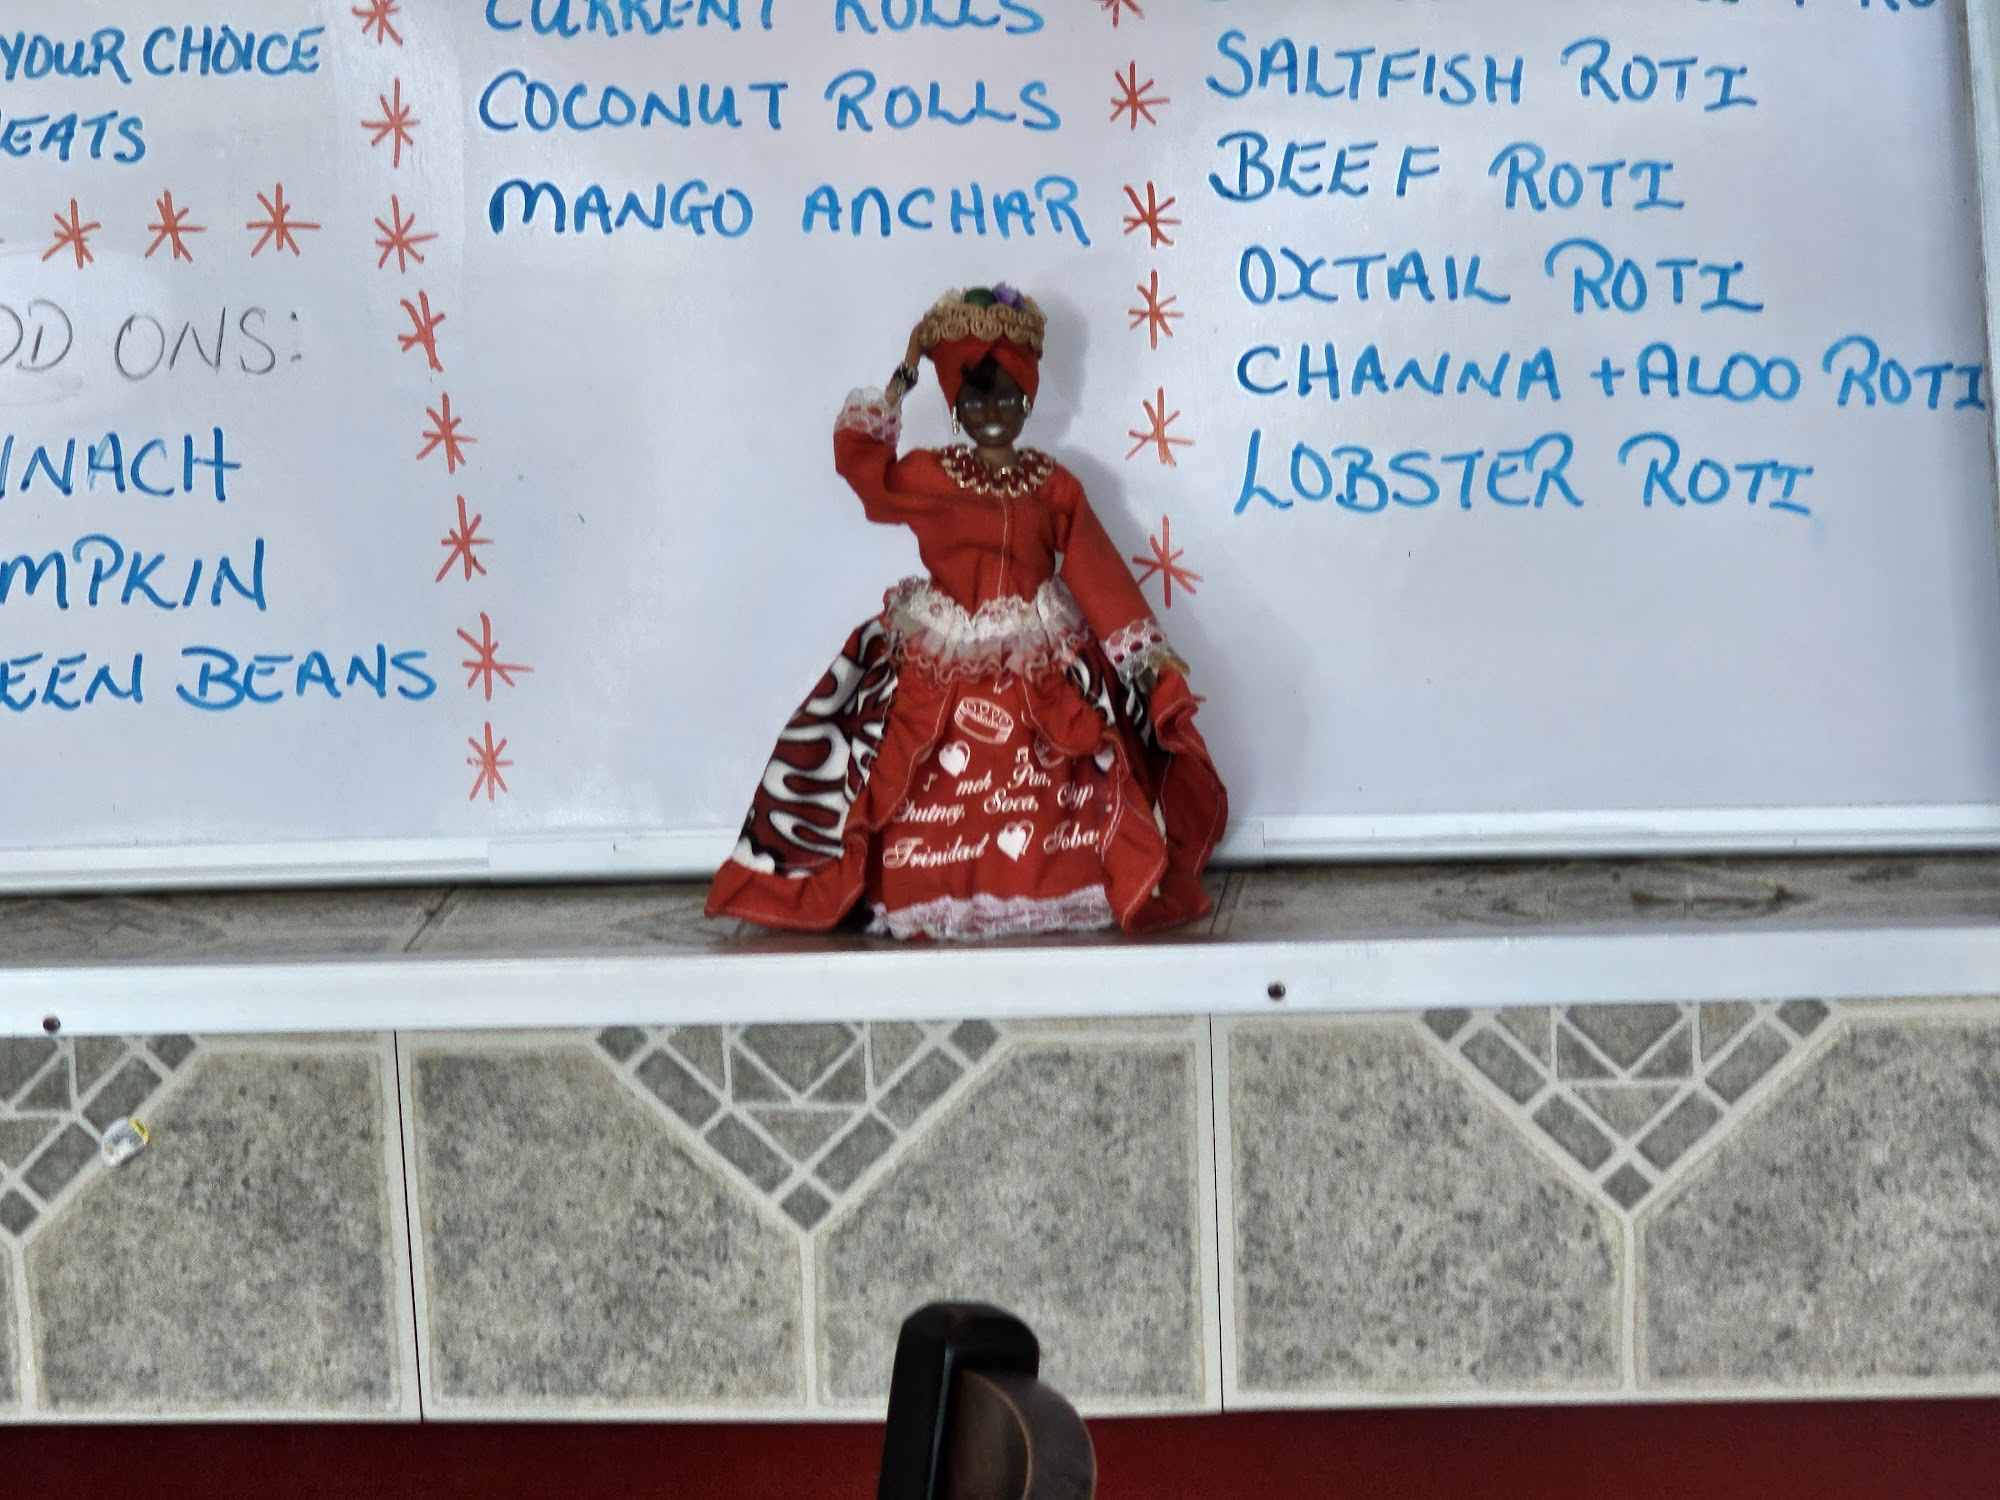 YOUR CHOICE
EATS
DD ONS:
NACH
MPKIN
EEN BEANS
CURRENT ROLLS
COCONUT ROLLS
MANGO ANCHAR
SALTFISH ROTI
BEEF ROTI
OXTAIL ROTI
CHANNA + ALOO ROTI
LOBSTER ROTI
meh Pan,
Chutney, Soca, Calyp
Trinidad Toba